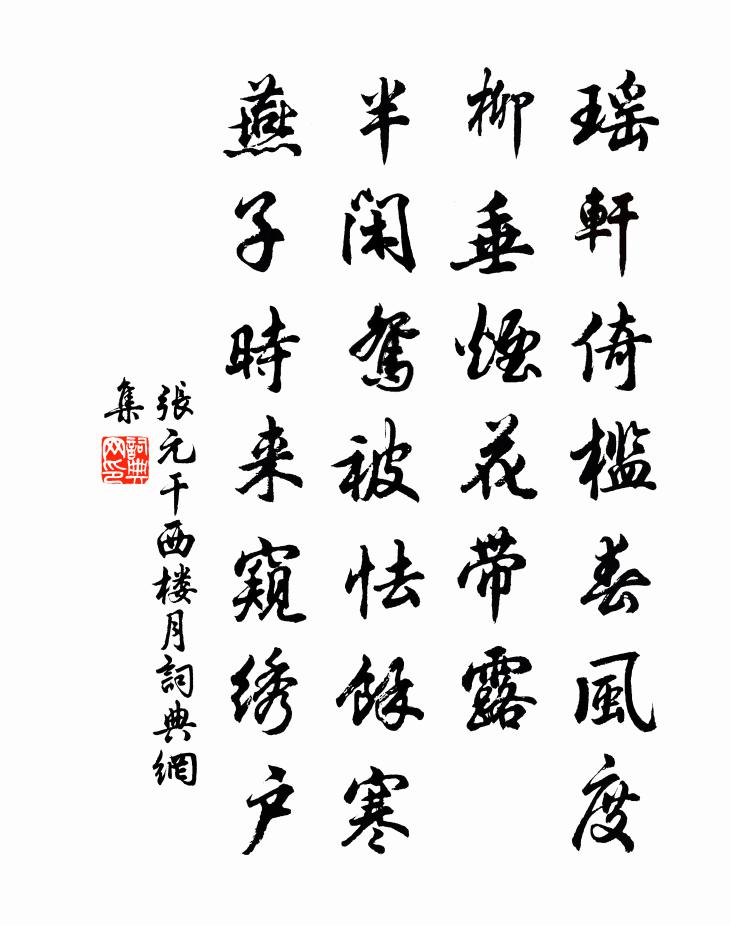 瑶軒倚檻春風度
柳垂煙花帶露
半閑鴛被怯餘寒
燕子時来窺绣户
張元干西楼月詞典網
集
詞典
网印